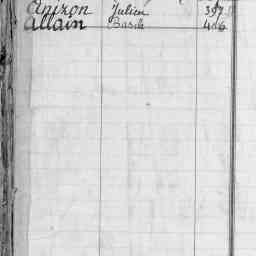 Anizon Julien 397
Allain Basile 406